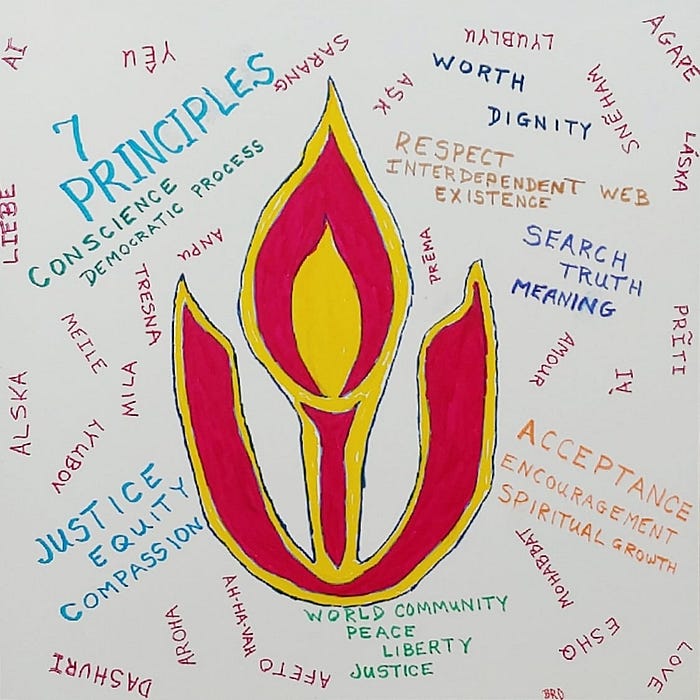 YÊU
SARANG
LYUBLYU
AGAPE
AŞK
WORTH
DIGNITY
SNEHAM
LÁSKA
7
PRINCIPLES
CONSCIENCE
DEMOCRATIC PROCESS
RESPECT
INTERDEPENDENT WEB
EXISTENCE
LIEBE
ANPU
PREMA
SEARCH
TRUTH
MEANING
TRESNA
MEILE
ALSKA
LYUBOV
AMOUR
PRĪTI
JUSTICE
EQUITY
COMPASSION
ACCEPTANCE
ENCOURAGEMENT
SPIRITUAL GROWTH
MOHABBAT
AH-HA-VAH
AROHA
DASHURI
AFETO
WORLD COMMUNITY
PEACE
LIBERTY
JUSTICE
ESHQ
LOVE
BRD